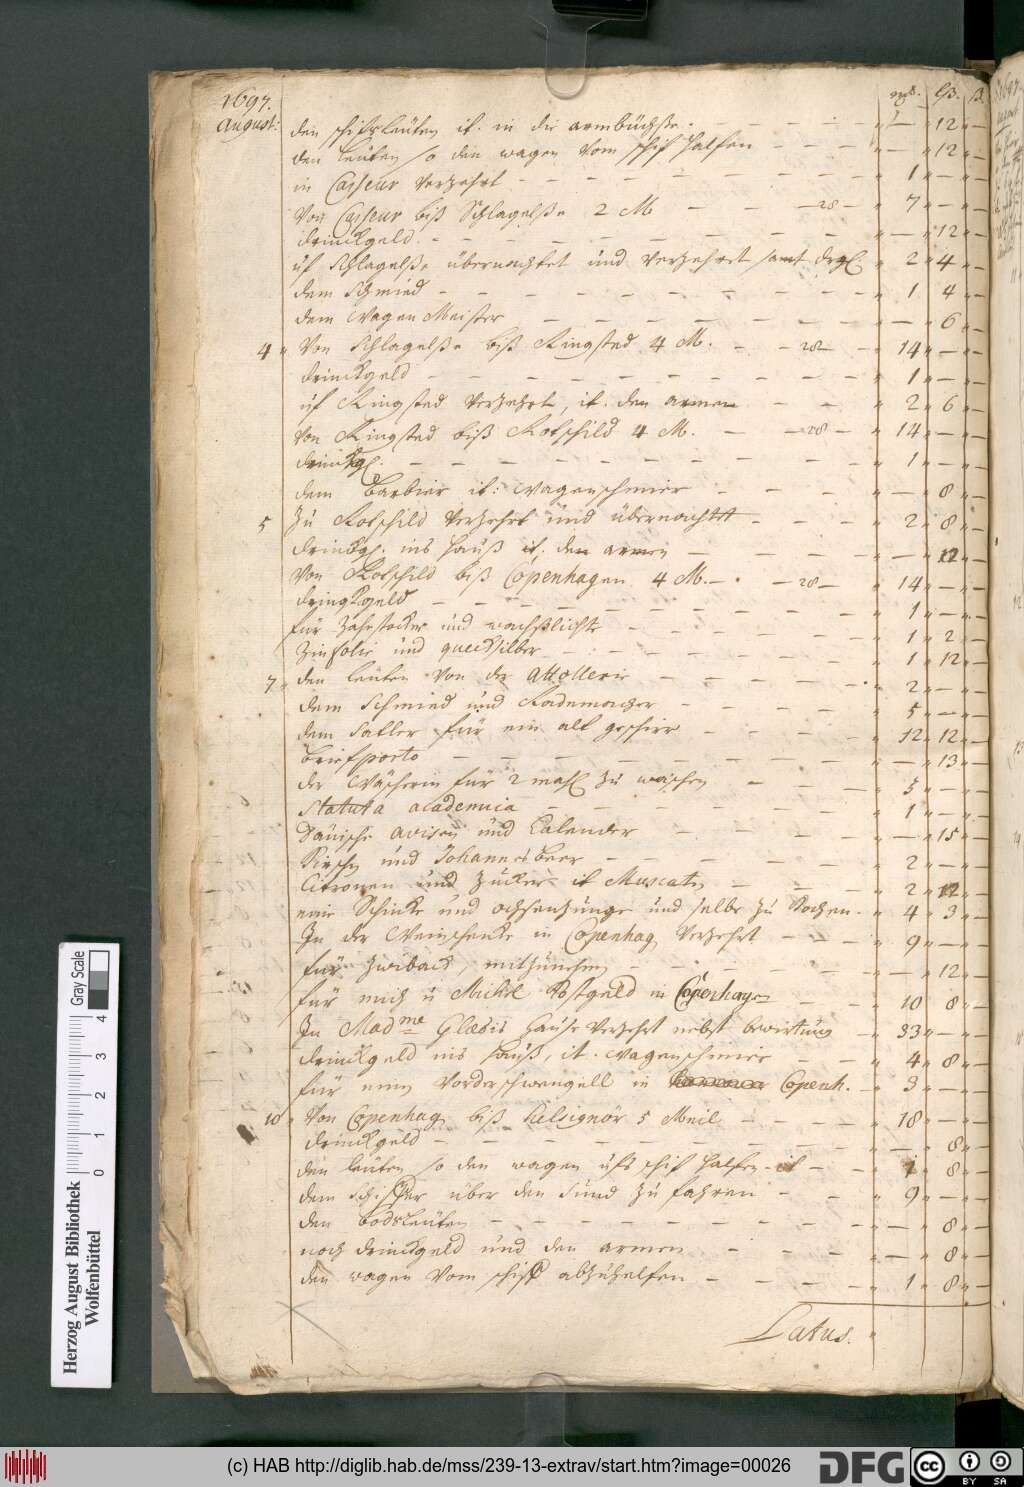 1697.
August:
den schifsleüten it. in die armbüchsse. — " — " 12 " —
den leüten so den wagen vom schif halfen — " — " 12 " —
in Casseur verzehrt — " 1 " — " —
Von Casseur biß Schlagelße 2 M — 28 — " 7 " — " —
drinckgeld. — " — " 12 " —
uf Schlagelße übernachtet und verzehret samt drgl " 2 " 4 " —
dem Schmied — " 1 " 4 " —
dem Wagen Meister — " — " 6 " —
4 " Von Schlagelße biß Ringsted 4 M. — 28 — " 14 " — " —
drinckgeld — " 1 " — " —
uf Ringsted verzehrt, it. den armen — " 2 " 6 " —
Von Ringsted biß Rotschild 4 M. — 28 — " 14 " — " —
drinckgl. — " 1 " — " —
dem barbier it: wagenschmier — " — " 8 " —
5 Zu Rotschild verzehrt und übernachtet — " 2 " 8 " —
drinckgl. ins hauß it. den armen — " — " 12 " —
Von Rotschild biß Copenhagen 4 M. — 28 — " 14 " — " —
dringkgeld — " 1 " — " —
für Zahnstocker und wachßlichte — " 1 " 2 " —
Zinfolie und quecksilber — " 1 " 12 " —
7 " den leüten von der Attollerie — " 2 " — " —
dem Schmied und Rademacher — " 5 " — " —
dem Satler für ein alt geschirr — " 12 " 12 " —
briefporto — " — " 13 " —
der Wäscherin für 2 mahl zu waschen — " 5 " — " —
Statuta academica — " 1 " — " —
Dänische avisen und Calender — " — " 15 " —
Kirschn und Johannesbeer — " 2 " — " —
Citronen und Zucker it Muscatn — " 2 " 12 " —
eine Schincke und ochsenzunge und selbe zu kochen — " 4 " 3 " —
In der Weinschencke in Copenhag verzehrt — " 9 " — " —
für Zwiback, mitzunehmen — " — " 12 " —
für mich u Michel Kostgeld in Copenhagen — " 10 " 8 " —
In Mad me Glæsis hause verzehrt nebst bewirtung — " 33 " — " —
drinckgeld ins hauß, it. wagenschmier — " 4 " 8 " —
für einen vorderschwengell in Copenh. — " 3 " — " —
10 " Von Copenhag biß Helsignör 5 Meil — " 18 " — " —
drinckgeld — " — " 8 " —
den leüten so den wagen ufs schif halfen — " 1 " 8 " —
dem Schiffer über den Sund zu fahren — " 9 " — " —
den bodsleüten — " — " 8 " —
noch drinckgeld und den armen — " — " 8 " —
den wagen vom schif abzuhelfen — " 1 " 8 " —
Latus. "
Herzog August Bibliothek
Wolfenbüttel
Gray Scale
0 1 2 3 4
(c) HAB http://diglib.hab.de/mss/239-13-extrav/start.htm?image=00026
DFG
cc BY SA